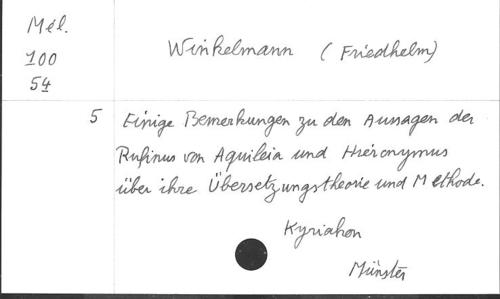 Mél.
100
54
Winkelmann (Friedhelm)
5 Einige Bemerkungen zu den Aussagen des
Rufinus von Aquileia und Hieronymus
über ihre Übersetzungstheorie und Methode.
Kyriakon
Münster